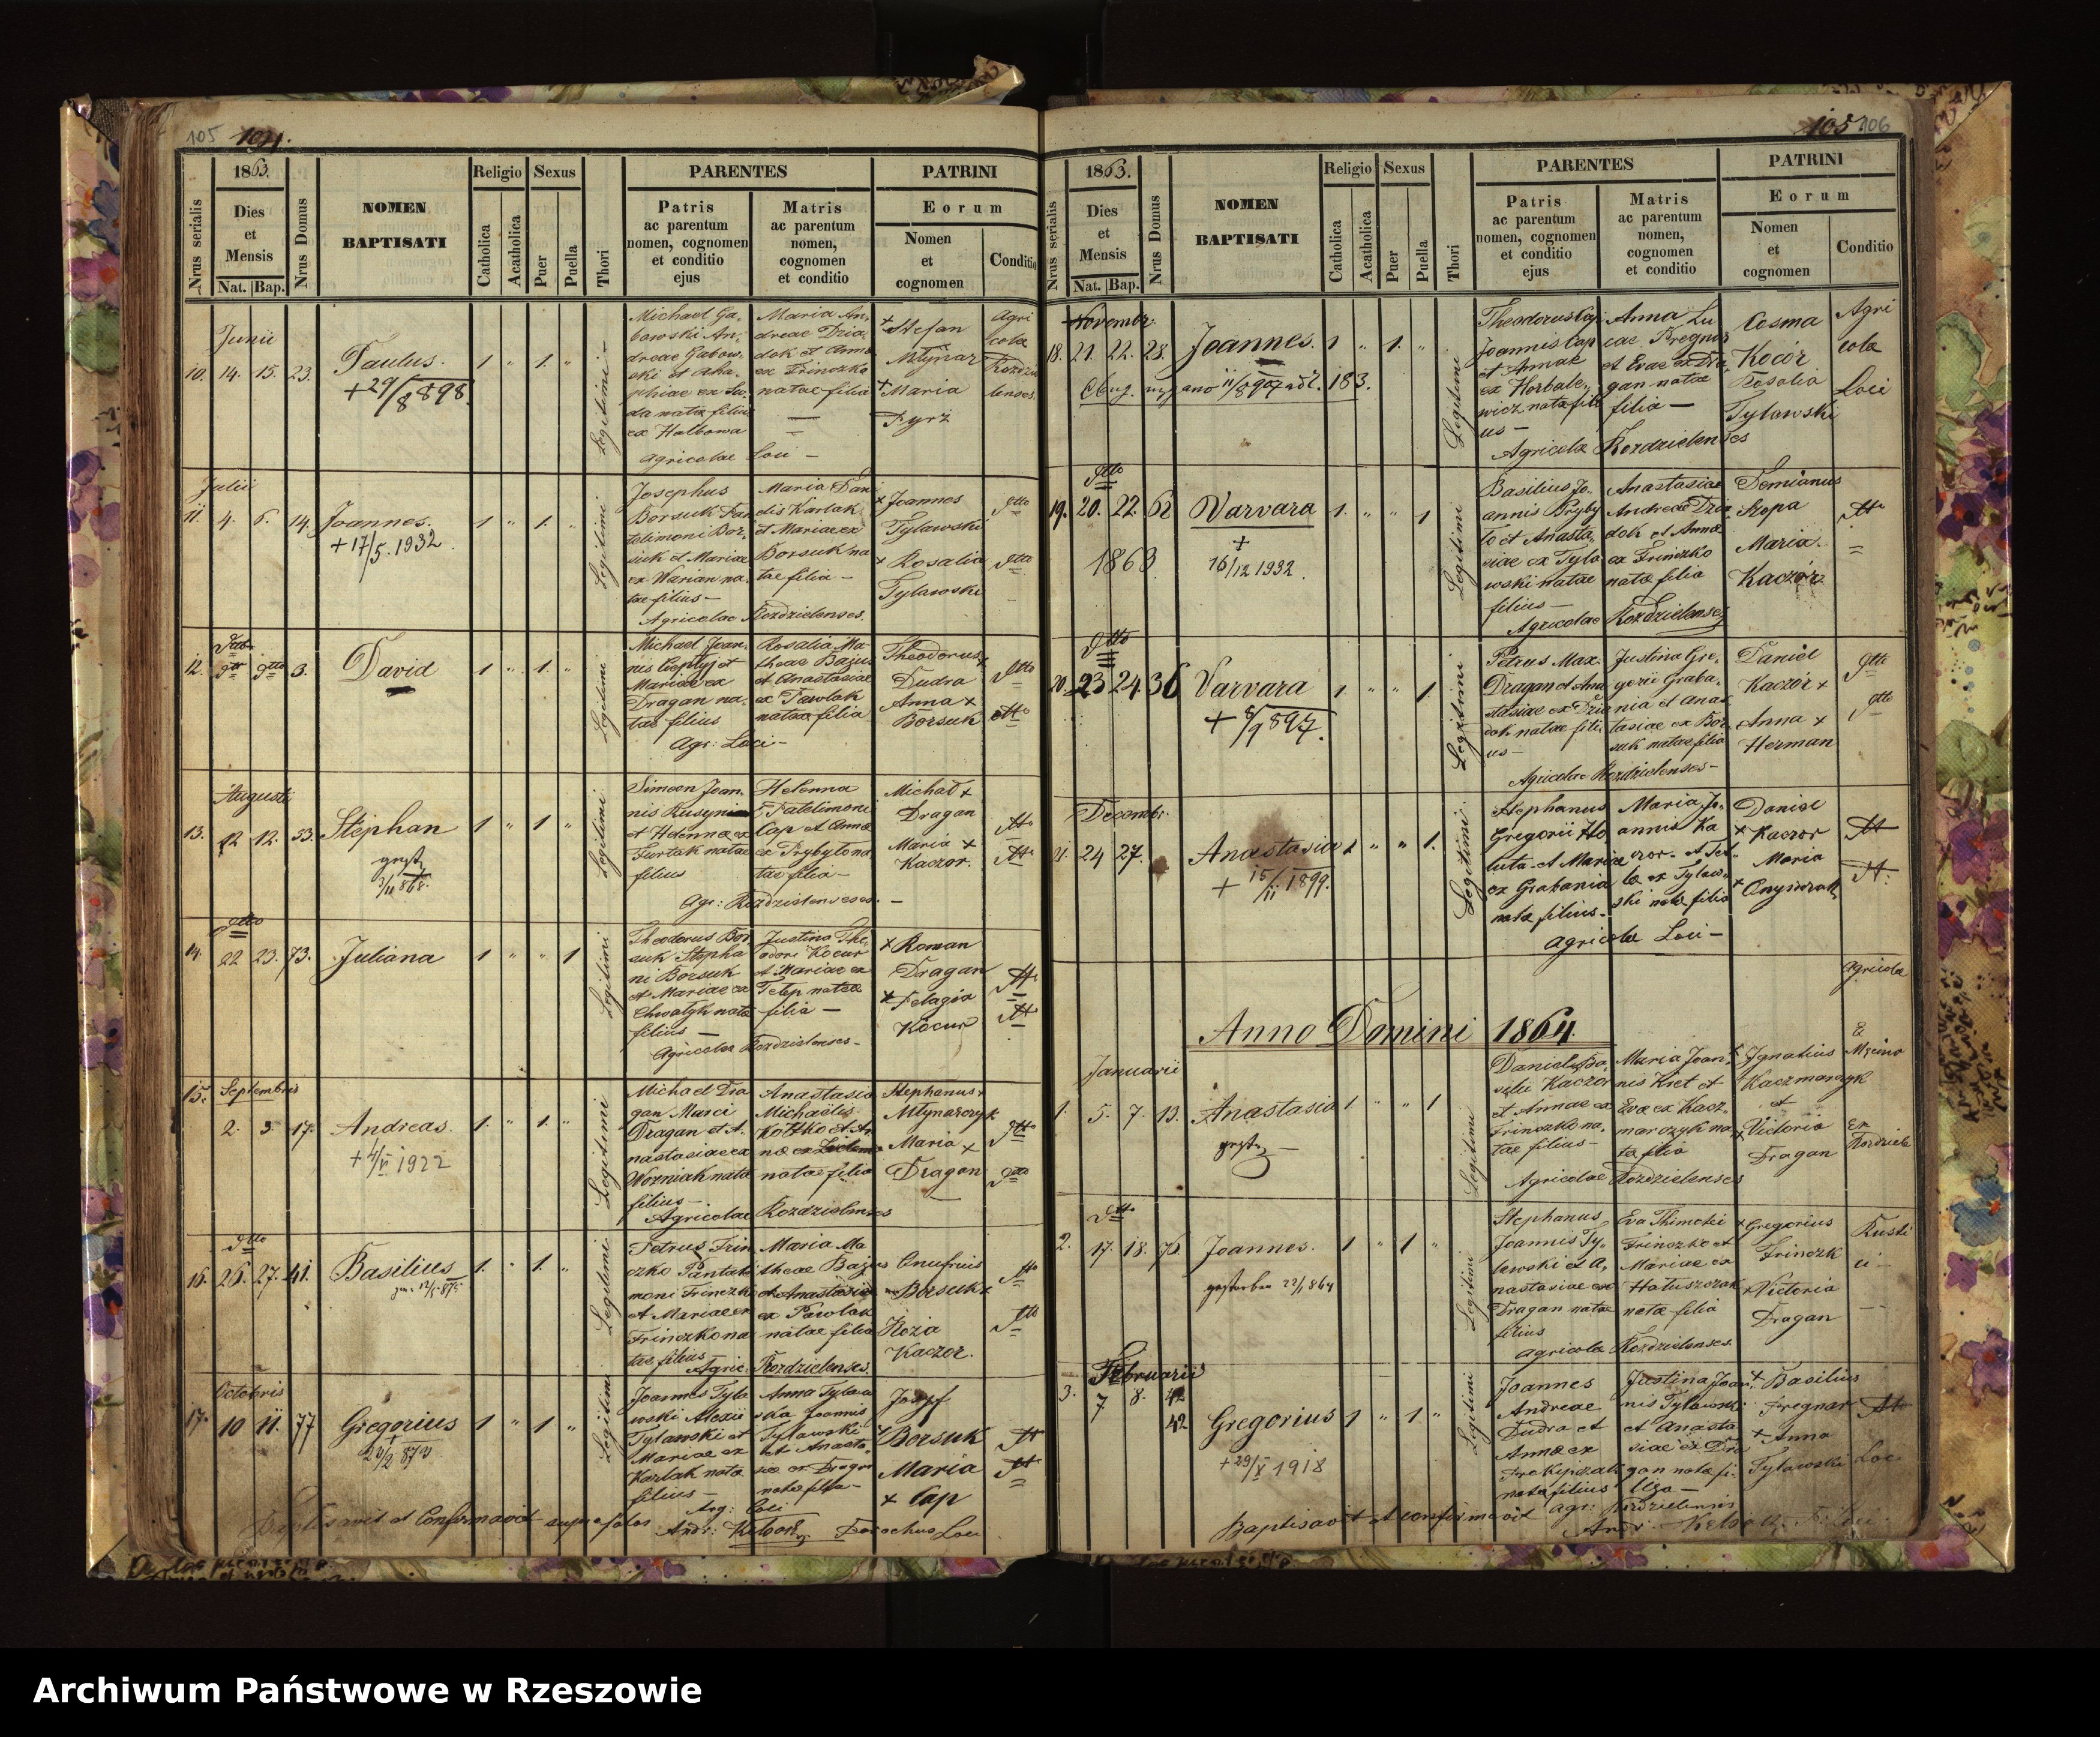 105 104.
1863.
Nrus serialis
Dies
et
Mensis
Nat. Bap.
Nrus Domus
NOMEN
BAPTISATI
Religio
Catholica
Acatholica
Sexus
Puer
Puella
Thori
PARENTES
Patris
ac parentum
nomen, cognomen
et conditio
ejus
Matris
ac parentum
nomen,
cognomen
et conditio
PATRINI
Eorum
Nomen
et
cognomen
Conditio
Junii
10. 14. 15. 23. Paulus. 1 " 1. "
+29/8 898.
Legitimi
Michael Ga-
bowski An-
dreae Gabow-
ski et Aga-
phiae ex Du-
da natae filius
ex Halbowa
Maria An-
dreae Dzia-
dok et Annae
ex Frinczko
natae filia
Agricolae Loci
+ Stefan
Młynar
+ Maria
Pyrż
Agri
cola
Julii
11. 4. 6. 14. Joannes. 1 " 1. "
+17/5.1932.
Legitimi
Josephus
Borsuk Pan
telimoni Bor-
suk et Mariae
ex Warian na-
tae filius
Maria Dani
elis Karlak
et Mariae ex
Borsuk na
tae filia
Agricolae Rozdzielenses.
+ Joannes
Tylawski
+ Rosalia
Tylawski
dtto
dtto
12. dtto dtto 3. David 1 " 1. "
Legitimi
Michael Joan-
nis Cieplyj et
Mariae ex
Dragan na-
tae filius
Rosalia Ma-
theae Bajus
et Anastasiae
ex Pawlak
natae filia
Agr: Loci
Theodorus
Dudra
Anna +
Borsuk
dtto
dtto
Augusti
13. 12 12. 53. Stephan 1 " 1 "
Legitimi
Simeon Joan-
nis Rusynia
et Helennae ex
Furtak natae
filius
Helenna
Patelimoni
Cap et Annae
ex Prybyto na
tae filia
Agr: Rozdzielenses.
Michał +
Dragan
Maria +
Kaczor.
dtto
dtto
dtto
14. 22 23. 73. Juliana 1 " " 1
Legitimi
Theodorus Bor
suk Stepha
ni Borsuk
et Mariae ex
Chwatyk natae
filius
Justina The-
odori Kocur
et Mariae ex
Petep natae
filia
Agricolae Rozdzielenses
+ Roman
Dragan
+ Pelagia
Kocur
dtto
dtto
15. Septembris
2. 3. 17. Andreas. 1. " 1. "
+4/V 1922
Legitimi
Michael Dra
gan Marci
Dragan et A-
nastasiae ex
Wozniak natae
filius
Anastasia
Michaelis
Kottko et An
nae ex
natae filia
Agricolae Rozdzielenses
Stephanus
Młynarczyk
Maria +
Dragan
dtto
dtto
dtto
16. 26. 27. 41. Basilius 1. " 1. "
Legitimi
Petrus Frin
czko Panteli
moni Frinczko
et Mariae ex
Frinczko na
tae filius
Maria Ma
theae Bajus
et Anastasiae
ex Pawlak
natae filia
Agric: Rozdzielenses.
Onufrius
Borsuk +
Rozia
Kaczor.
dtto
dtto
Octobris
17. 10 11. 77 Gregorius 1 " 1 "
Legitimi
Joannes Tyla
wski Alexii
Tylawski et
Mariae ex
Karlak natae
filius
Anna Tylaw
ska Joannis
Tylawski
et Anasta-
siae ex Dragan
natae filia
Agr: Loci
Jozef
Borsuk
Maria
+ Cap
dtto
dtto
Baptisavit et Confirmavit
Parochus Loci
105 106
1863.
Nrus serialis
Dies
et
Mensis
Nat. Bap.
Nrus Domus
NOMEN
BAPTISATI
Religio
Catholica
Acatholica
Sexus
Puer
Puella
Thori
PARENTES
Patris
ac parentum
nomen, cognomen
et conditio
ejus
Matris
ac parentum
nomen,
cognomen
et conditio
PATRINI
Eorum
Nomen
et
cognomen
Conditio
Novembr.
18. 21. 22. 28. Joannes. 1 " 1. "
183.
Legitimi
Theodorus Cap
Joannis Cap
et Annae
ex Horbale-
wicz natae fili
us
Anna Lu
cae Fregnar
et Evae ex Dra-
gan natae
filia
Agricolae Rozdzielenses
Cosma
Kocór
Rosalia
Tylawski
Agri
cola
Loci
dtto
19. 20. 22. 62 Varvara 1. " " 1
1863
+
16/12 1932.
Legitimi
Basilius Jo-
annis Pryby
to et Anasta-
siae ex Tyla
wski natae
filius
Anastasiae
Andreae Dzia-
dok et Annae
ex Frinczko
natae filia
Agricolae Rozdzielenses
Demianus
Szopa
Maria
Kaczór
dtto
dtto
20. 23 24. 36 Varvara 1. " " 1.
Legitimi
Petrus Max.
Dragan et Ana
stasiae ex Dzia
dok natae fili
us
Justina Gre-
gorii Graba-
nia et Anas
tasiae ex Bor
suk natae filia
Agricolae Rozdzielenses
Daniel
Kaczór +
Anna +
Herman
dtto
dtto
Decembr.
21. 24 27. Anastasia 1 " " 1.
+ 15/II 1899.
Legitimi
Stephanus
Gregorii Ho
luta et Mariae
ex Grabania
natae filius
Maria Jo-
annis Ka
czor et Tek-
lae ex Tylaw-
ski natae filia
Agricolae Loci
Daniel
+ Kaczor
Maria
+ Onyszczak
dtto
dtto
Anno Domini 1864.
Agricola
Januarii
1. 5. 7. 13. Anastasia 1 " " 1
Legitimi
Daniel Ba-
silii Kaczor
et Annae ex
Frinczko na-
tae filius
Maria Joan-
nis Kret et
Evae ex Kacz-
marczyk na
tae filia
Agricolae Rozdzielenses
+ Ignatius
Kaczmarczyk
et
+ Victoria
Dragan
E
Ex
dtto
2. 17. 18. 76. Joannes. 1 " 1 "
gestorben 22/1 864
Legitimi
Stephanus
Joannis Ty-
lawski et A-
nastasiae ex
Dragan natae
filius
Eva Thimothei
Frinczko et
Mariae ex
Hatuszczak
natae filia
Agricolae Rozdzielenses.
+ Gregorius
Frinczk
+ Victoria
Dragan
Rusti
ci
Februarii
3. 7 8. 42
42 Gregorius 1 " 1 "
+29/X 1918
Legitimi
Joannes
Andreae
Dudra et
Annae ex
Prokipczak
natae filius
Justina Joan-
nis Tylawski
et Anasta
siae ex Dra
gan natae fi-
lia
Agr: Rozdzielensis
+ Basilius
Fregnar
+ Anna
Tylawski
dtto
Loc
Baptisavit et confirmavit
Archiwum Państwowe w Rzeszowie